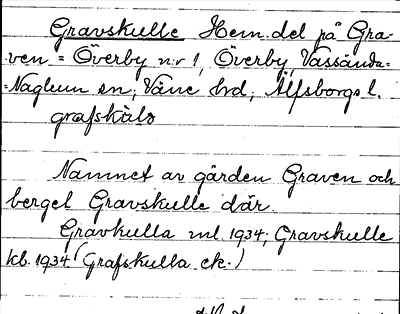 Gravskulle Hem.del på Gra-
ven = Överby n:r 1, Överby, Vassända=
=Naglum sn; Väne hd; Älfsborgs l.
grafskůlo
Namnet av gården Graven och
berget Gravskulle där.
Gravkulla ml. 1934; Gravskulle
kb. 1934 (Grafskulla ek.)